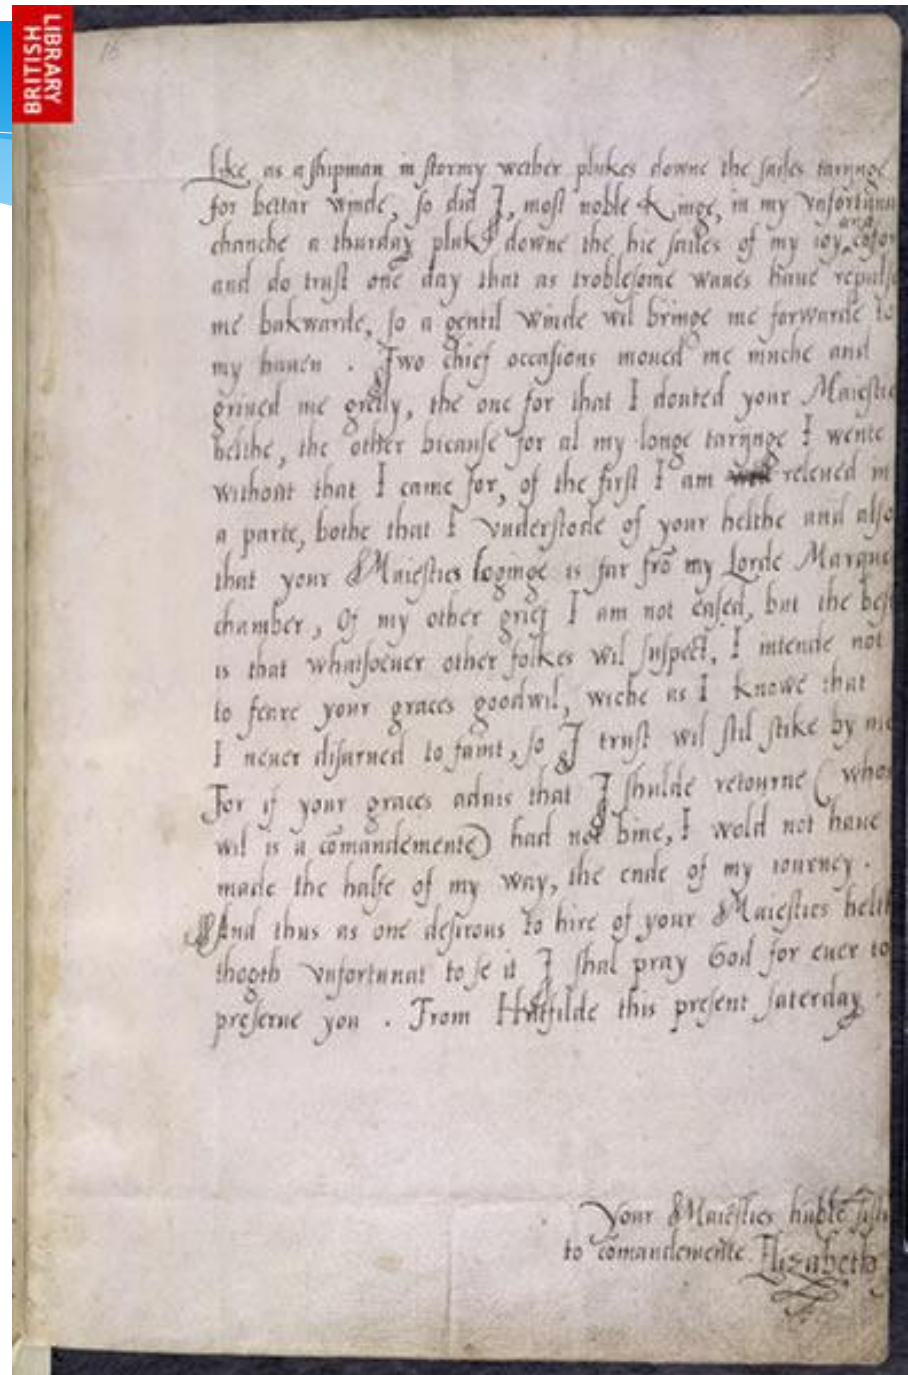 BRITISH
LIBRARY
16
Like as a shipman in stormy wether plukes downe the sailes taryinge
for bettar winde, so did I, most noble Kinge, in my vnfortuna
chanche a thurday pluk downe the hie sailes of my ioy and cõfor
and do trust one day that as troblesome waues haue repuls
me bakwarde, so a gentil winde wil bringe me forwarde to
my hauen . Two chief occasions moued me muche and
griued me gretly, the one for that I douted your Maiestie
helthe, the other bicause for al my longe taryinge I wente
without that I came for, of the first I am releued in
a parte, bothe that I vnderstode of your helthe and also
that your Maiesties loginge is far frõ my Lorde Marques
chamber, Of my other grief I am not eased, but the best
is that whatsoeuer other folkes wil suspect, I intende not
to feare your graces goodwil, wiche as I knowe that
I neuer disarued to faint, so I trust wil stil stike by me
For if your graces aduis that I shulde retourne (whos
wil is a cõmandemente) had not bine, I wold not haue
made the halfe of my way, the ende of my iourney .
And thus as one desirous to hire of your Maiesties helth
thogth vnfortunat to se it I shal pray God for euer to
preserue you . From Hatfilde this present saterday .
Your Maiesties hũble sistr
to cõmandemente Elizabeth